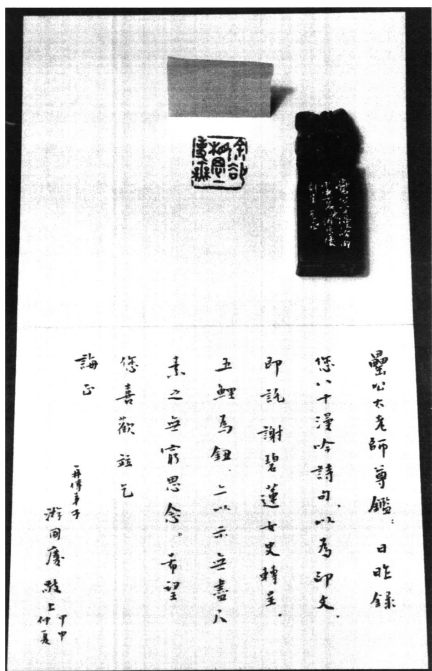 公太老師尊鑑：日昨錄
您八十漫吟詩句，以為印文，
即託謝碧蓮女史轉呈，
五鯉為鈕，以示無盡尺
素之無窮思念，希望
您喜歡並乞
誨正
再傳弟子
游国慶 敬上 甲申仲夏